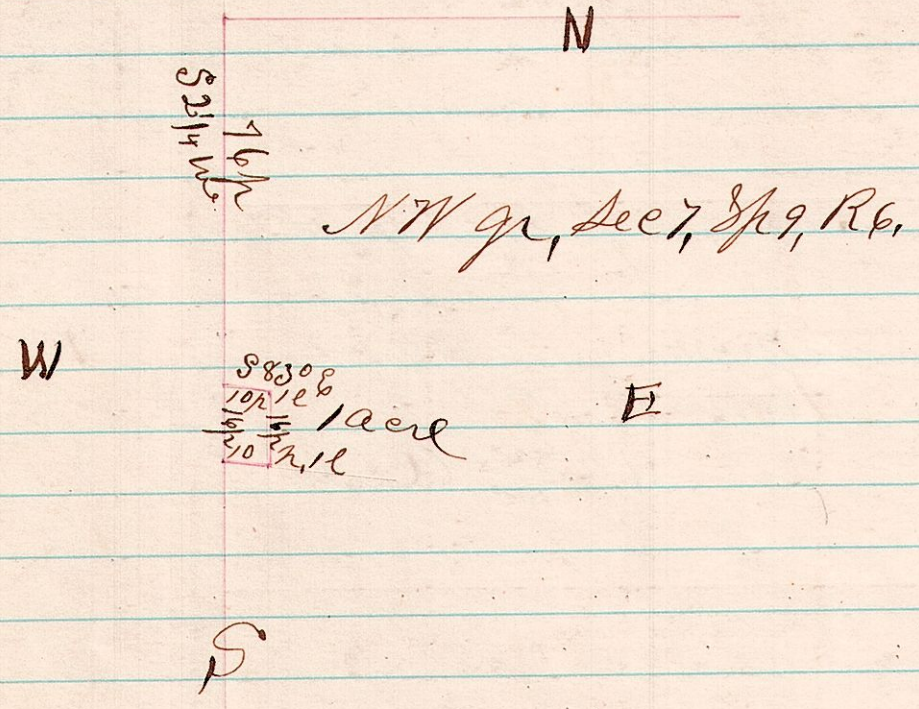 N
S 2 1/4 W
76 p
NW qr, Sec 7, Tp 9, R 6.
W
S 83° E
10 p 1 l
16 p
16 p
1 acre
E
10 p, 1 l
S